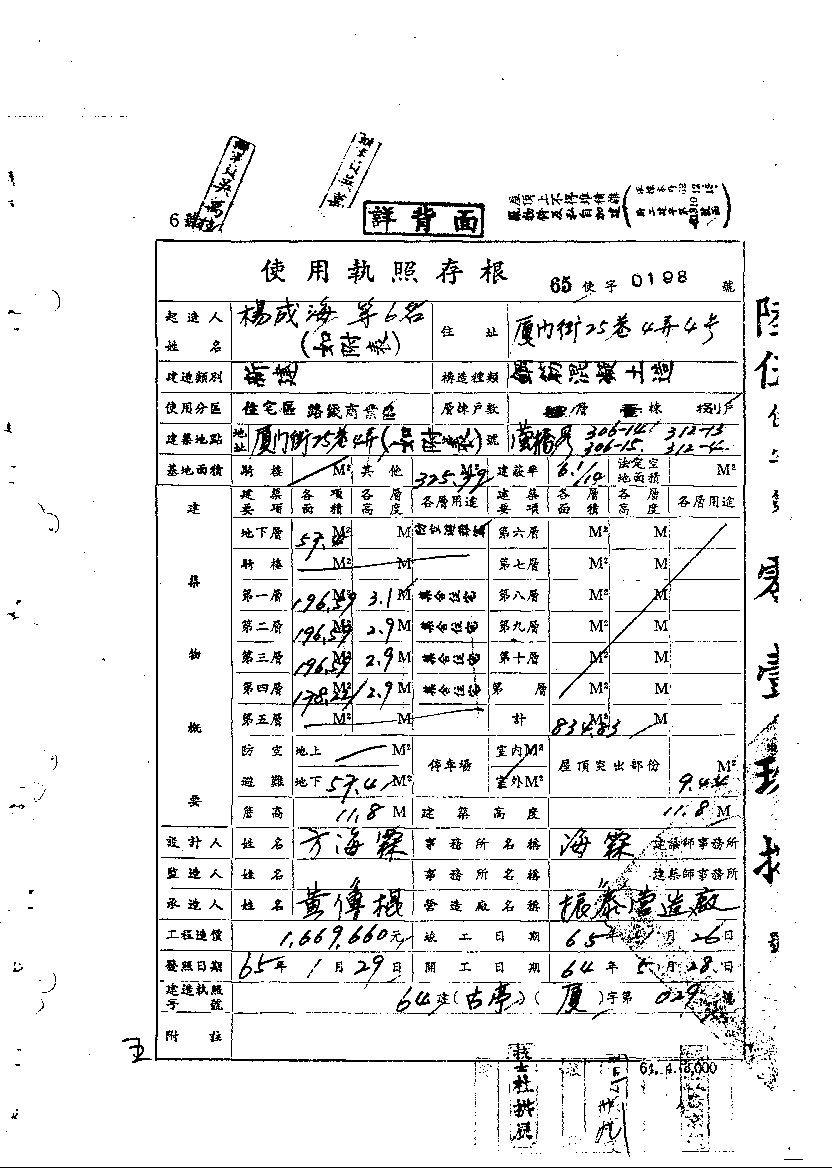 6
詳背面
使用執照存根
65 使字 0198 號
起造人姓名 楊成海等6名(如附表) 住址 厦门街25巷4弄4号
建造類別 新建 構造種類 鋼筋混凝土造
使用分區 住宅區 路線商業區 層棟戶數 層 棟 戶
建築地點 地址 厦门街25巷4弄 號 306-14 312-13
306-15 312-4
基地面積 騎樓 M² 其他 325.39 M² 建蔽率 6.1/10 法定空地面積 M²
建築物概要 建築要項 各項面積 各層高度 各層用途 建築要項 各層面積 各層高度 各層用途
地下層 57.4 M² M 第六層 M² M
騎樓 M² M 第七層 M² M
第一層 196.59 M² 3.1 M 集合住宅 第八層 M² M
第二層 196.59 M² 2.9 M 集合住宅 第九層 M² M
第三層 196.59 M² 2.9 M 集合住宅 第十層 M² M
第四層 178.22 M² 2.9 M 集合住宅 第 層 M² M
第五層 M² M 計 834.83 M² M
防空 地上 M² 停車場 室內 M² 屋頂突出部份 M²
避難 地下 57.41 M² 室外 M² 9.44
簷高 11.8 M 建築高度 11.8 M
設計人 姓名 方海霖 事務所名稱 海霖 建築師事務所
監造人 姓名 事務所名稱 建築師事務所
承造人 姓名 黃傳棍 營造廠名稱 振泰營造廠
工程造價 1,669,660元 竣工日期 65年1月26日
發照日期 65年1月29日 開工日期 64年5月28日
建造執照字號 64建(古亭)(厦)字第 029 號
附註